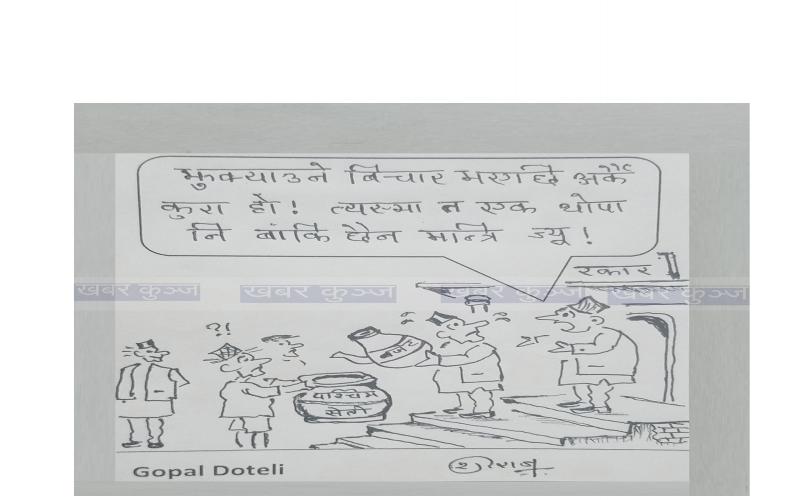 झुक्याउने बिचार भएपछि अर्कै
कुरा हो! त्यस्मा त एक थोपा
नि बांकि छैन मान्त्रि ज्यू!
रकार
खबर कुञ्ज खबर कुञ्ज खबर कुञ्ज खबर कुञ्ज
?!
बजेट
पश्चिम
सेती
Gopal Doteli